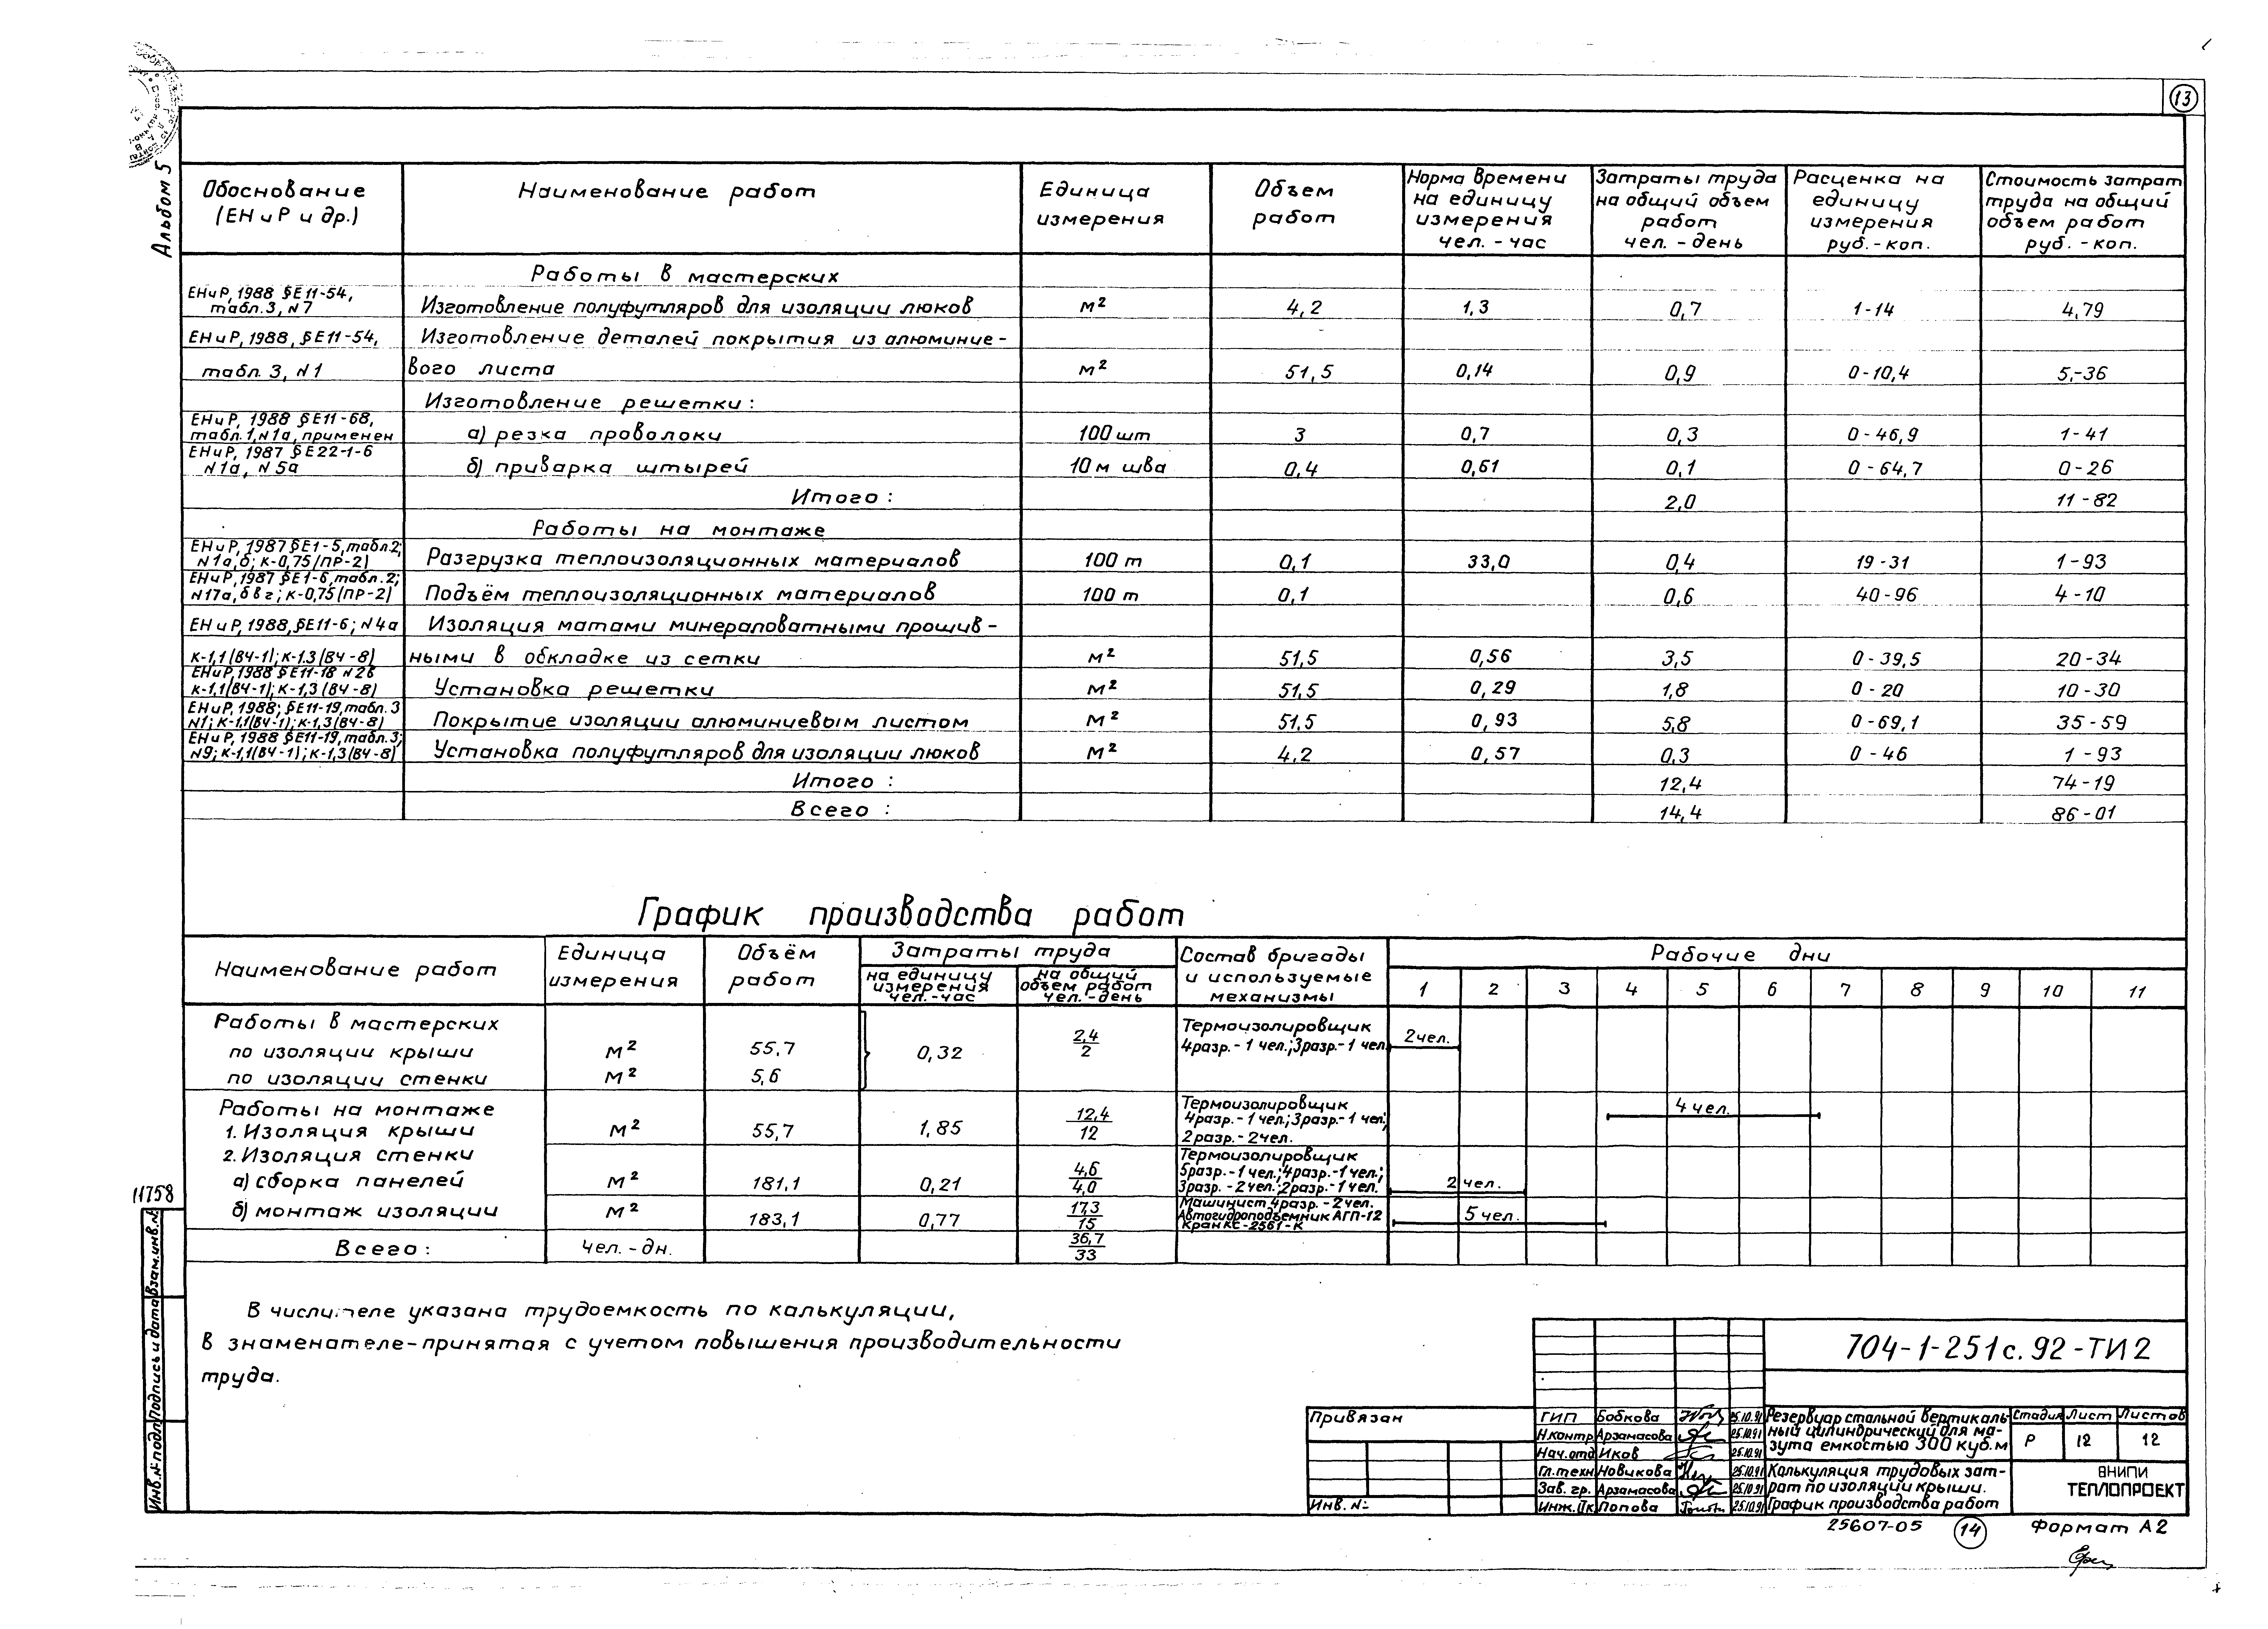 13
Альбом 5
Обоснование (ЕНиР и др.) | Наименование работ | Единица измерения | Объем работ | Норма времени на единицу измерения чел.-час | Затраты труда на общий объем работ чел.-день | Расценка на единицу измерения руб.-коп. | Стоимость затрат труда на общий объем работ руб.-коп.
Работы в мастерских
ЕНиР, 1988 §Е11-54, табл.3, №7 | Изготовление полуфутляров для изоляции люков | м² | 4,2 | 1,3 | 0,7 | 1-14 | 4,79
ЕНиР, 1988, §Е11-54, | Изготовление деталей покрытия из алюминие-
табл. 3, №1 | вого листа | м² | 51,5 | 0,14 | 0,9 | 0-10,4 | 5,-36
Изготовление решетки:
ЕНиР, 1988 §Е11-68, табл.1,№1а, применен | а) резка проволоки | 100 шт | 3 | 0,7 | 0,3 | 0-46,9 | 1-41
ЕНиР, 1987 §Е22-1-6 №1а, №5а | б) приварка штырей | 10м шва | 0,4 | 0,61 | 0,1 | 0-64,7 | 0-26
Итого: | 2,0 | 11-82
Работы на монтаже
ЕНиР, 1987 §Е1-5, табл.2; №1а,б; К-0,75/ПР-2) | Разгрузка теплоизоляционных материалов | 100 т | 0,1 | 33,0 | 0,4 | 19-31 | 1-93
ЕНиР, 1987 §Е1-6, табл.2; №17а,бвг; К-0,75(ПР-2) | Подъём теплоизоляционных материалов | 100 т | 0,1 | 0,6 | 40-96 | 4-10
ЕНиР, 1988, §Е11-6; №4а | Изоляция матами минераловатными прошив-
К-1,1(ВЧ-1); К-1.3(ВЧ-8) | ными в обкладке из сетки | м² | 51,5 | 0,56 | 3,5 | 0-39,5 | 20-34
ЕНиР, 1988 §Е11-18 №2в К-1,1(ВЧ-1); К-1,3(ВЧ-8) | Установка решетки | м² | 51,5 | 0,29 | 1,8 | 0-20 | 10-30
ЕНиР, 1988; §Е11-19, табл.3 №1; К-1,1(ВЧ-1); К-1,3(ВЧ-8) | Покрытие изоляции алюминиевым листом | м² | 51,5 | 0,93 | 5,8 | 0-69,1 | 35-59
ЕНиР, 1988 §Е11-19, табл.3; №9; К-1,1(ВЧ-1); К-1,3(ВЧ-8) | Установка полуфутляров для изоляции люков | м² | 4,2 | 0,57 | 0,3 | 0-46 | 1-93
Итого: | 12,4 | 74-19
Всего: | 14,4 | 86-01
График производства работ
Наименование работ | Единица измерения | Объём работ | Затраты труда | на единицу измерения чел.-час | на общий объем работ чел.-день | Состав бригады и используемые механизмы | Рабочие дни
1 2 3 4 5 6 7 8 9 10 11
Работы в мастерских
по изоляции крыши | м² | 55,7 | 0,32 | 2,4/2 | Термоизолировщик 4разр.-1 чел.; 3разр.-1 чел. | 2чел.
по изоляции стенки | м² | 5,6
Работы на монтаже
1. Изоляция крыши | м² | 55,7 | 1,85 | 12,4/12 | Термоизолировщик 4разр.-1 чел.; 3разр.-1 чел.; 2разр.-2чел. | 4 чел.
2. Изоляция стенки
а) сборка панелей | м² | 181,1 | 0,21 | 4,6/4,0 | Термоизолировщик 5разр.-1 чел.; 4разр.-1чел.; 3разр.-2чел.; 2разр.-1чел. | 2 чел.
б) монтаж изоляции | м² | 183,1 | 0,77 | 17,3/15 | Машинист 4разр.-2чел. Автогидроподъемник АГП-12 Кран КС-2561-К | 5 чел.
Всего: | Чел.-дн. | 36,7/33
В числителе указана трудоемкость по калькуляции,
в знаменателе-принятая с учетом повышения производительности
труда.
11758
Инв.№подл. Подпись и дата Взам.инв.№
704-1-251с.92-ТИ2
Привязан
Инв.№
ГИП Бобкова 25.10.91
Н.контр Арзамасова 25.10.91
Нач.отд Иков 25.10.91
Гл.техн Новикова 25.10.91
Зав. гр. Арзамасова 25.10.91
Инж.IIк Попова 25.10.91
Резервуар стальной вертикаль-
ный цилиндрический для ма-
зута емкостью 300 куб.м
Стадия Лист Листов
Р 12 12
Калькуляция трудовых зат-
рат по изоляции крыши.
График производства работ
ВНИПИ
ТЕПЛОПРОЕКТ
25607-05 14 Формат А2